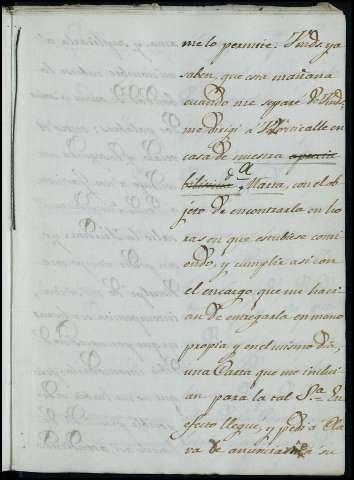 me lo permite. Vmds. ya
saben, que esta mañana
cuando me separé de Vmds.
me dirigi à Xoricalle en
casa de nuestra
Dª Maria, con el ob
jeto de encontrarla en ho
ras en que estubiese comi
endo, y cumplir asi con
el encargo, que me haci
an de entregarla en mano
propia y en el mismo dia,
una Carta que me inclui
an para la tal Sra. En
efecto llegue, y pedi a Cla
ra de anunciarme à su